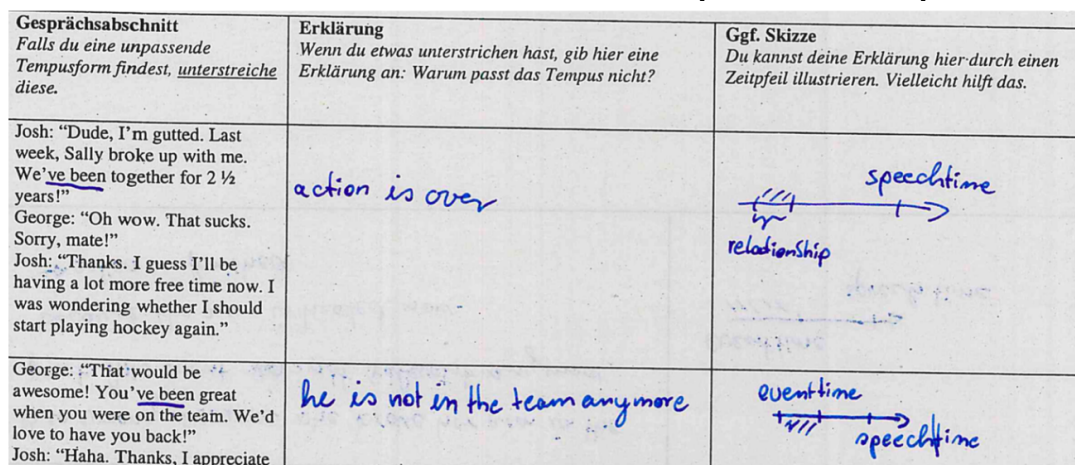 Gesprächsabschnitt
Falls du eine unpassende
Tempusform findest, unterstreiche
diese.
Erklärung
Wenn du etwas unterstrichen hast, gib hier eine
Erklärung an: Warum passt das Tempus nicht?
Ggf. Skizze
Du kannst deine Erklärung hier durch einen
Zeitpfeil illustrieren. Vielleicht hilft das.
Josh: “Dude, I’m gutted. Last
week, Sally broke up with me.
We’ve been together for 2 ½
years!”
George: “Oh wow. That sucks.
Sorry, mate!”
Josh: “Thanks. I guess I’ll be
having a lot more free time now. I
was wondering whether I should
start playing hockey again.”
action is over
speechtime
relationship
George: “That would be
awesome! You’ve been great
when you were on the team. We’d
love to have you back!”
Josh: “Haha. Thanks, I appreciate
he is not in the team anymore
eventtime
speechtime